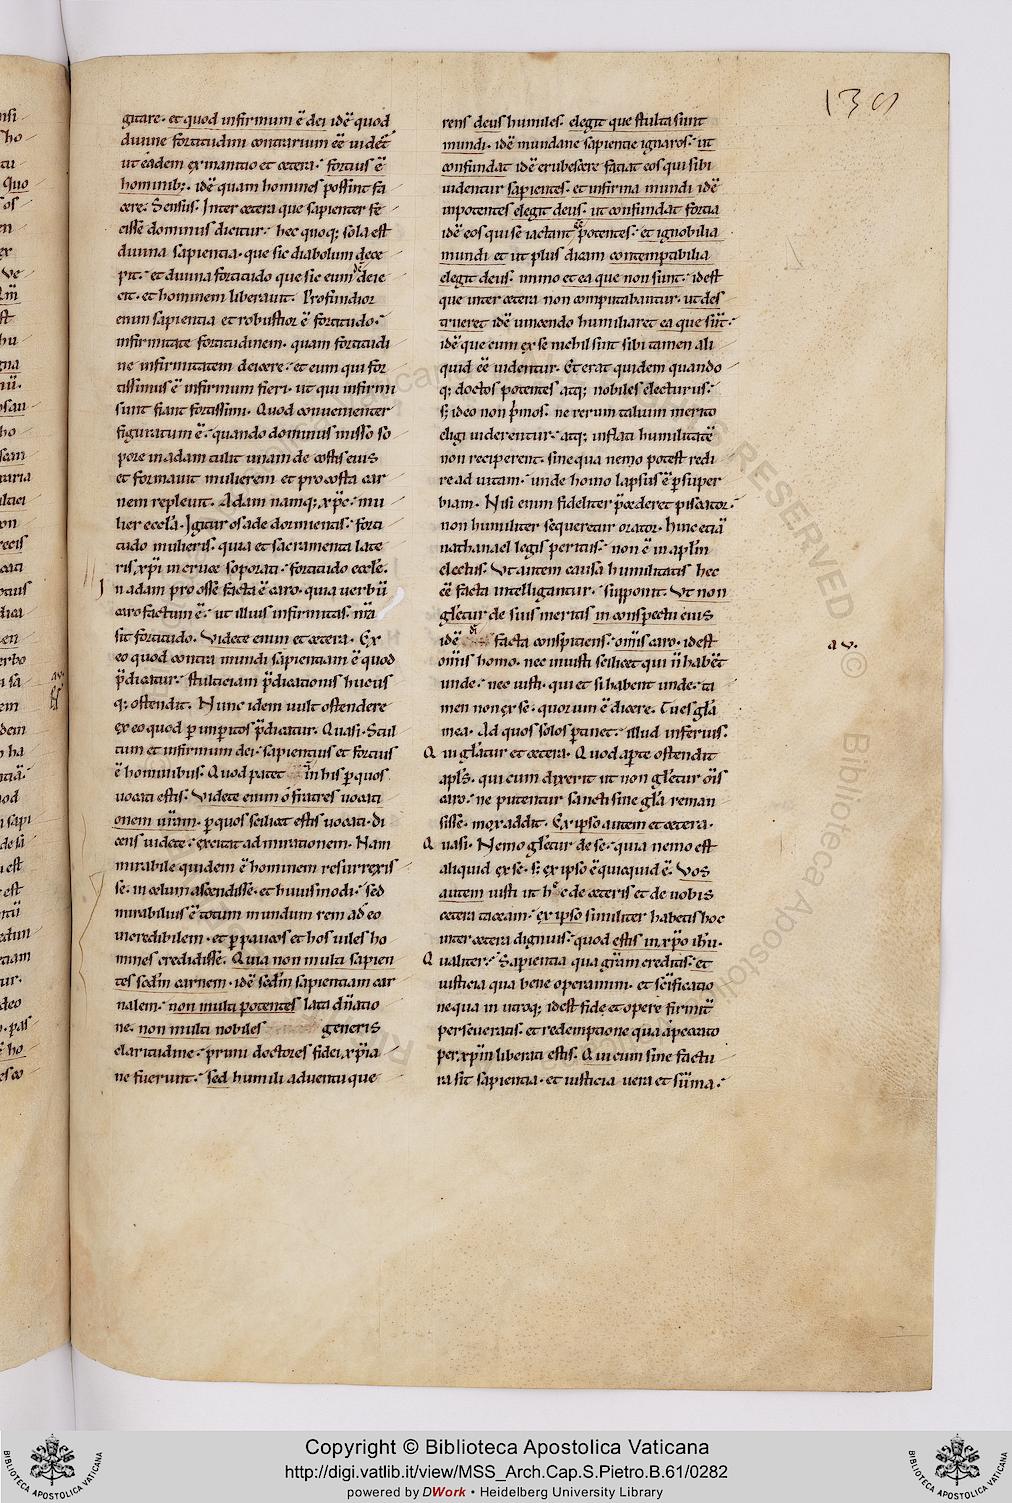 139
gitare· et quod infirmum ē dei idē quod
diuine fortitudini contrarium eē uidet̄
ut eadem exmanitio et cetera· fortius ē
hominib; idē quam homines possint fa
cere· Sensus· Inter cetera que sapienter fe
cisse dominus dicitur· hec quoq; sola est
diuina sapientia· que sic diabolum dece
pit· et diuina fortitudo que sic eum deie
cit· et hominem liberauit· Profundior
enim sapientia et robustior ē fortitudo·
infirmitate fortitudinem· quam fortitudi
ne infirmitatem deicere· et eum qui for
tissimus ē infirmum fieri· ut qui infirmi
sunt fiant fortissimi· Quod conuenienter
figuratum ē· quando dominus misso so
pore in adam tulit unam de costis eius
et formauit mulierem et pro costa car
nem repleuit· Adam namq; xp̄c· mu
lier eccl̄a· Igitur os ade dormientis· forti
tudo mulieris· quia et sacramenta late
ris xp̄i in cruce soporati· fortitudo eccl̄e·
In adam pro osse facta ē caro· quia uerbū
caro factum ē· ut illius infirmitas n̄ra
sit fortitudo· Videte enim et cetera· Ex
eo quod contra mundi sapientiam ē quod
p̄dicatur· stulticiam p̄dicationis hucus
q; ostendit· Nunc idem uult ostendere
ex eo quod p imp̄itos p̄dicatur· Quasi· Stul
tum et infirmum dei· sapientius et fortius
ē hominibus· Quod patet in his p quos
uocati estis· Videte enim o fratres uocati
onem ur̄am· p quos scilicet estis uocati· di
cens uidete· excitat admirationem· Nam
mirabile quidem ē hominem resurrexis
se· in celum ascendisse· et huiusmodi· sed
mirabilius ē totum mundum rem adeo
incredibilem· et p paucos et hos uiles ho
mines credidisse· Quia non multi sapien
tes scd̄m carnem· idē scd̄m sapientiam car
nalem· non multi potentes lata dn̄atio
ne· non multi nobiles generis
claritudine· primi doctores fidei xp̄ia
ne fuerunt· sed humili aduentu que
rens deus humiles· elegit que stulta sunt
mundi· idē mundane sapientie ignaros· ut
confundat idē erubescere faciat eos qui sibi
uidentur sapientes· et infirma mundi idē
inpotentes elegit deus· ut confundat fortia
idē eos qui se iactant eē potentes· et ignobilia
mundi et ut plus dicam contemptibilia
elegit deus· immo et ea que non sunt· idest
que inter cetera non computabantur· ut des
trueret idē uincendo humiliaret ea que sūt·
idē que cum ex se nichil sint sibi tamen ali
quid eē uidentur· Et erat quidem quando
q; doctos potentes atq; nobiles electurus·
s; ideo non p̄mos· ne rerum talium merito
eligi uiderentur· atq; inflati humilitatē
non reciperent· sine qua nemo potest redi
re ad uitam· unde homo lapsus ē p super
biam· Nisi enim fideliter p̄cederet piscator·
non humiliter sequeretur orator· hinc etiā
nathanael legis peritus· non ē in apl̄m
electus· Vt autem causa humilitatis hec
eē facta intelligantur· supponit· Vt non
gl̄etur de suis meritis in conspectu eius
idē facta conspiciens· om̄is caro· idest
om̄is homo· nec iniusti scilicet qui n̄ habēt
unde· nec iusti· qui et si habent unde· ta
men non ex se· quorum ē dicere· Tu es gl̄a
mea· Ad quos solos p̄tinet· illud inferius·
Qui gl̄atur et cetera· Quod apte ostendit
apl̄s· qui cum dixerit ut non gl̄etur om̄is
caro· ne putentur sancti sine gl̄a reman
sisse· mox addit· Ex ipso autem et cetera·
Quasi· Nemo gl̄etur de se· quia nemo est
aliquid ex se· s; ex ipso ē quicquid ē· Vos
autem iusti ut hec de ceteris et de uobis
cetera taceam· ex ipso similiter habetis hoc
inter cetera dignius· quod estis in xp̄o ih̄u·
Qualiter· Sapientia qua gr̄am creditis· et
iusticia qua bene operamini· et sc̄ificatio
ne qua in utroq; idest fide et opere firmit̄
perseueratis· et redemptione qua a peccato
per xp̄m liberati estis· Qui cum sine factu
ra sit sapientia· et iusticia uera et sum̄a·
Copyright © Biblioteca Apostolica Vaticana
http://digi.vatlib.it/view/MSS_Arch.Cap.S.Pietro.B.61/0282
powered by DWork • Heidelberg University Library